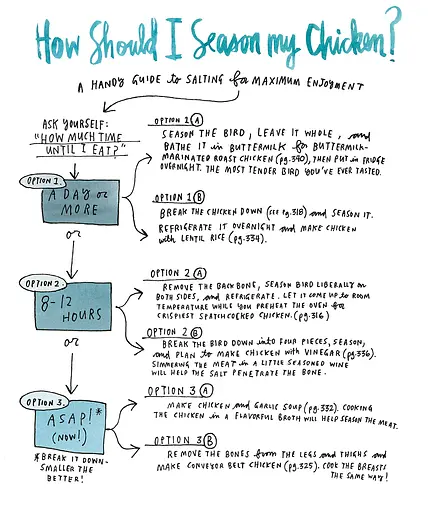 How Should I Season my Chicken?
A HANDY GUIDE to SALTING for MAXIMUM ENJOYMENT
ASK YOURSELF:
"HOW MUCH TIME
UNTIL I EAT?"
OPTION 1.
A DAY or
MORE
OPTION 2 A
SEASON THE BIRD, LEAVE IT WHOLE, and
BATHE IT in BUTTERMILK for BUTTERMILK-
MARINATED ROAST CHICKEN (pg. 340), THEN PUT in FRIDGE
OVERNIGHT. THE MOST TENDER BIRD YOU'VE EVER TASTED.
OPTION 1 B
BREAK THE CHICKEN DOWN (see pg. 318) and SEASON IT.
REFRIGERATE IT OVERNIGHT and MAKE CHICKEN
with LENTIL RICE (pg. 334).
or
OPTION 2.
8-12
HOURS
OPTION 2 A
REMOVE THE BACKBONE, SEASON BIRD LIBERALLY on
BOTH SIDES, and REFRIGERATE. LET IT COME UP to ROOM
TEMPERATURE WHILE YOU PREHEAT THE OVEN for
CRISPIEST SPATCHCOCKED CHICKEN. (pg. 316)
OPTION 2 B
BREAK THE BIRD DOWN into FOUR PIECES, SEASON,
and PLAN to MAKE CHICKEN with VINEGAR (pg. 336).
SIMMERING THE MEAT in A LITTLE SEASONED WINE
WILL HELP THE SALT PENETRATE THE BONE.
or
OPTION 3.
ASAP!*
(NOW!)
*BREAK IT DOWN-
SMALLER THE
BETTER!
OPTION 3 A
MAKE CHICKEN and GARLIC SOUP (pg. 332). COOKING
THE CHICKEN in A FLAVORFUL BROTH WILL HELP SEASON THE MEAT.
OPTION 3 B
REMOVE THE BONES from THE LEGS and THIGHS and
MAKE CONVEYOR BELT CHICKEN (pg. 325). COOK THE BREASTS
THE SAME WAY!